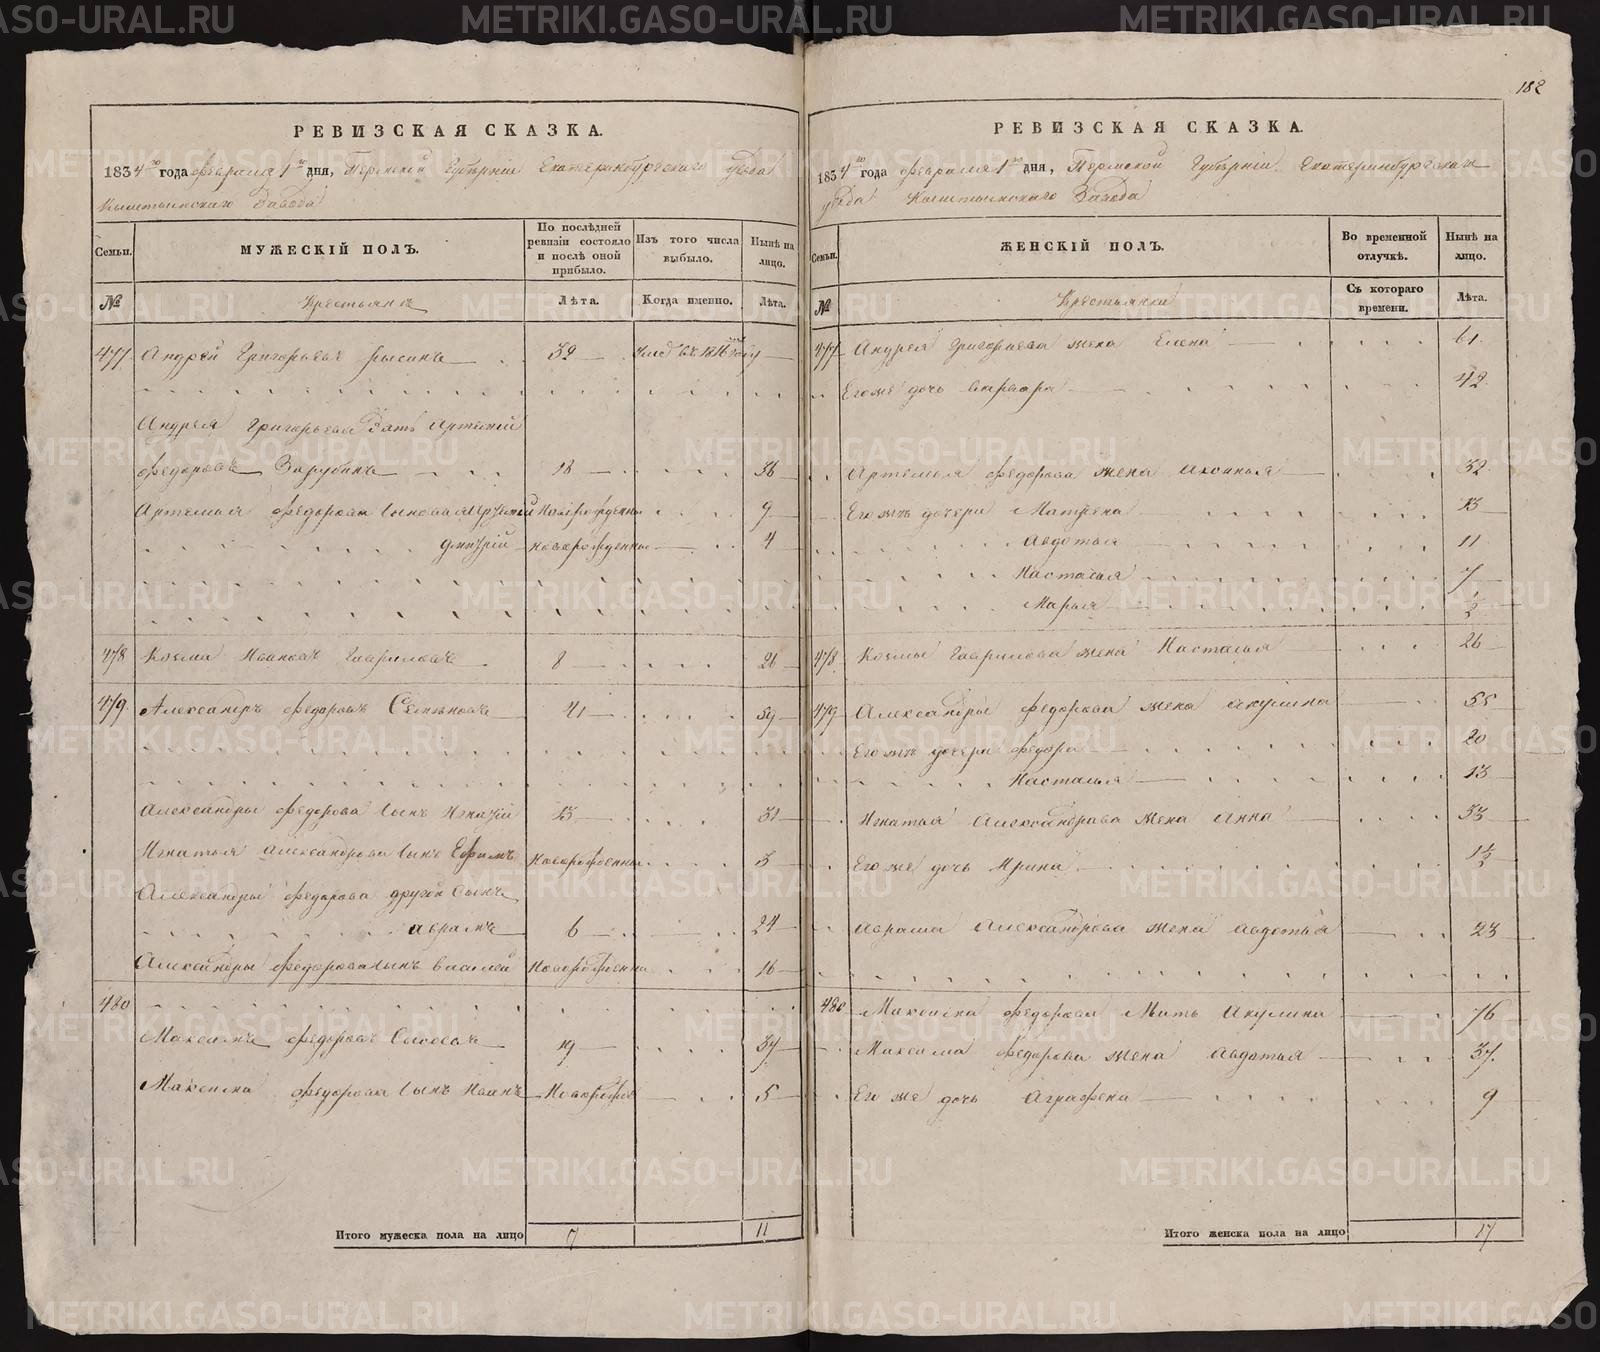 182
РЕВИЗСКАЯ СКАЗКА.
1834го года февраля 1го дня, Пермской Губерніи Екатеринбургскаго уезда
Кыштымскаго Завода
Семьи.
МУЖЕСКІЙ ПОЛЪ.
По послѣдней ревизіи состояло и послѣ оной прибыло.
Изъ того числа выбыло.
Нынѣ на лицо.
№
Крестьянъ
Лѣта.
Когда именно.
Лѣта.
477. Андрей Григорьевъ 39
Андрея Григорьева Зять Артемій
Федоровъ Зарубинъ 18 36
Артемья Федорова сыновья новорожденны 9
Дмитрій новорожденны 4
478 Козма Ивановъ Гавриловъ 8 26
479. Александръ Федоровъ 41 59
Александры Федорова сынъ Игнатій 13 31
Игнатья Александрова сынъ Ефимъ новорожденны 3
Александры Федорова другой сынъ
Аврамъ 6 24
Александры Федорова сынъ Василей новорожденны 16
480
Максимъ Федоровъ 19 37
Максима Федорова сынъ Иванъ 5
Итого мужеска пола на лицо 7 11
РЕВИЗСКАЯ СКАЗКА.
1834го года февраля 1го дня, Пермской Губерніи Екатеринбургскаго
уезда Кыштымскаго Завода
Семьи.
ЖЕНСКІЙ ПОЛЪ.
Во временной отлучкѣ.
Нынѣ на лицо.
№
Крестьянки
Съ котораго времени.
Лѣта.
477 Андрея Григорьева жена Елена 61
Его же дочь Варвара 42
Артемья Федорова жена 32
Его жъ дочери Матрена 13
Авдотья 11
Настасья 7
Марья ½
478. Козмы Гаврилова жена Настасья 26
479 Александры Федорова жена Акулина 55
Его жъ дочери Федора 20
Настасья 13
Игнатья Александрова жена Анна 33
Его же дочь Ирина 1½
Аврама Александрова жена Авдотья 23
480 Максима Федорова Мать Акулина 76
Максима Федорова жена Авдотья 37.
Его же дочь Аграфена 9
Итого женска пола на лицо 17
METRIKI.GASO-URAL.RU